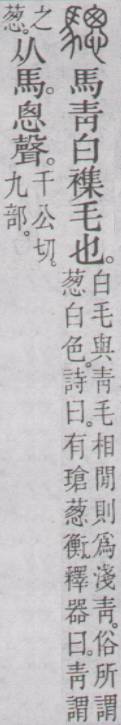 驄馬青白襍毛也。白毛與青毛相閒則爲淺青。俗所謂
葱白色。詩曰。有瑲葱衡。釋器曰。青謂
之葱。从馬。悤聲。千公切。
九部。